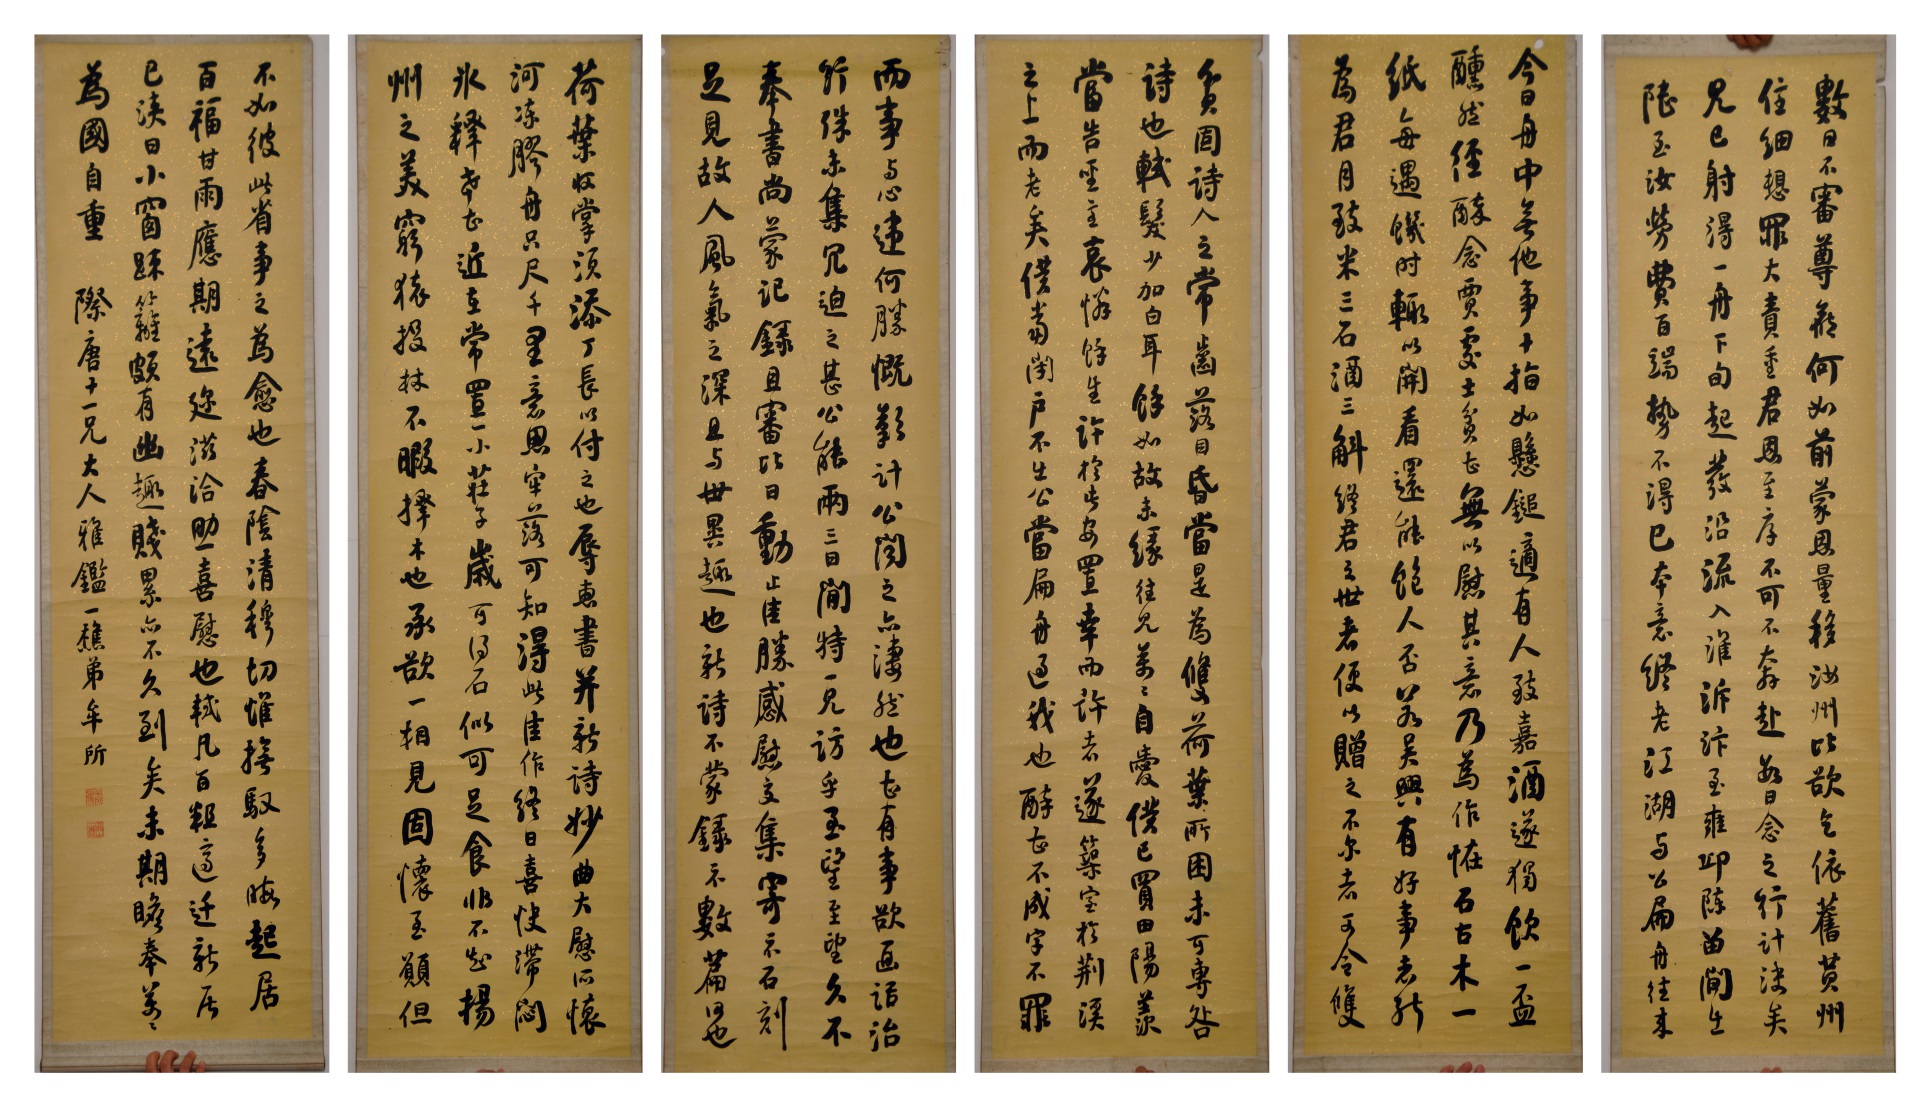 數日不審尊候何如前蒙恩量移汝州比欲乞依舊黃州
住細想罪大責重君恩至厚不可不奔赴數日念之行計決矣
見已射得一舟下旬起發沿流入淮泝汴至雍邱陳留間出
陸至汝勞費百端勢不得已本意終老江湖與公扁舟往來
而事與心違何勝慨歎計公聞之亦淒然也甚有事欲面話治
行殊未集冗迫之甚公能兩三日間特一見訪乎至望至望久不
奉書尚蒙記錄且審比日動止佳勝感慰交集寄示石刻
足見故人風氣之深且與世異趣也新詩不蒙錄示數篇何也
貧固詩人之常齒落目昏當是為雙荷葉所困未可專咎
詩也軾髮少加白耳餘如故未緣往見萬萬自愛僕已買田陽羨
當告聖主哀憐餘生許於此安置幸而許者遂築室於荊溪
之上而老矣僕當閉戶不出公當扁舟過我也醉甚不成字不罪
今日舟中無他事十指如懸鎚適有人致嘉酒遂獨飲一盃
醺然徑醉念賈處士貧甚無以慰其意乃為作怪石古木一
紙每遇饑時輒以開看還能飽人否若吳興有好事者能
為君月致米三石酒三斛終君之世者便以贈之不爾者可令雙
荷葉收掌須添丁長以付之也辱惠書并新詩妙曲大慰所懷
河凍膠舟咫尺千里意思牢落可知得此佳作終日喜快滯悶
冰釋幸甚近在常置一小莊子歲可得石似可足食非不知揚
州之美窮猿投林不暇擇木也承欲一相見固懷至願但
不如彼此省事之為愈也春陰清穆切惟撫馭多暇起居
百福甘雨應期遠邇滋洽助喜慰也軾凡百粗遣適遷新居
已浹日小窗疎籬頗有幽趣賤累亦不久到矣未期瞻奉萬萬
為國自重 際唐十一兄大人雅鑑一樵弟牟所